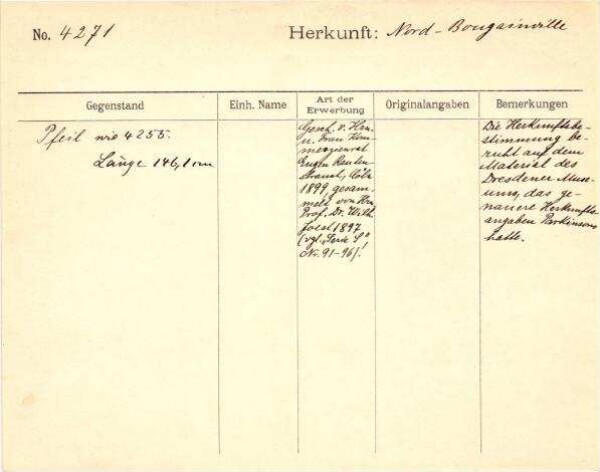 No. 4271
Herkunft: Nord-Bougainville
Gegenstand
Einh. Name
Art der Erwerbung
Originalangaben
Bemerkungen
Pfeil wie 4255.
Länge 146,1 cm
Gesch. v. Hrn.
u. Frau Kom-
merzienrat
Eugen Rauten-
strauch, Cöln
1899, gesam-
melt von Hrn.
Prof. Dr. Wilh.
Joest 1897
(vgl. „Serie S"
Nr. 91-96)!
Die Herkunftsbe-
stimmung be-
ruht auf dem
Material des
Dresdener Muse-
ums, das ge-
nauere Herkunfts-
angaben Parkinsons
hatte.